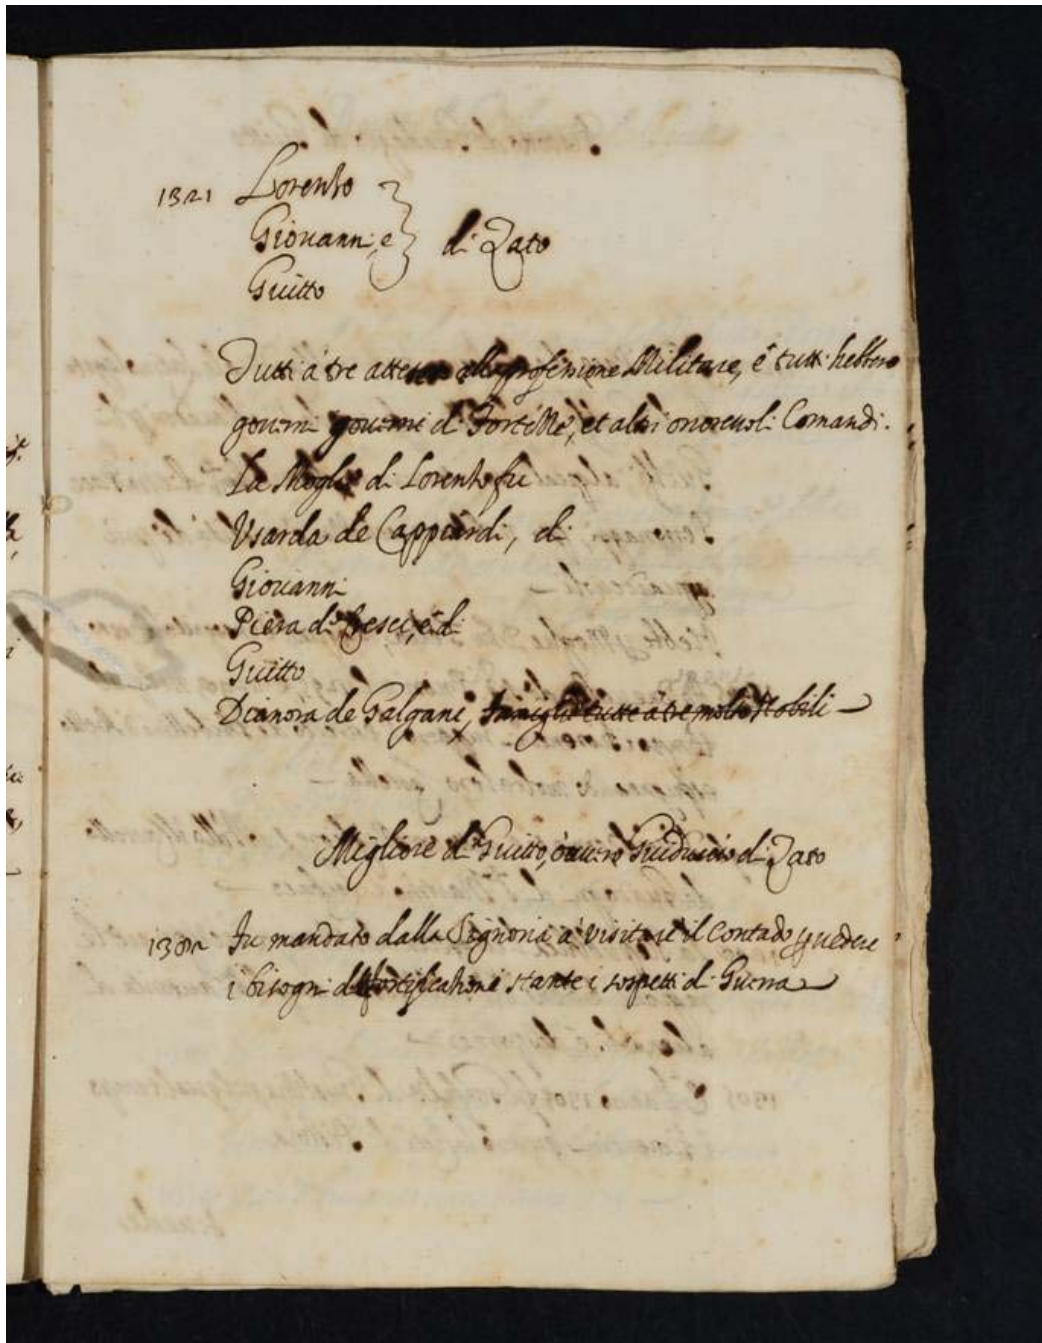 1321 Lorenzo
Giovanni, e
di Zato
Guitto
Tutti à tre attesero alla professione Militare, è tutti hebbero
governi governi di Fortezze, et altri onorevoli Comandi.
La Moglie di Lorenzo fu
Usarda de Cappiardi, di
Giovanni
Piera di Cresci, è di
Guitto
Dianora de Galgani, famiglie tutte à tre molto Nobili
Migliore di Guitto, overo Guiduccio di Zato
1302 Fu mandato dalla Signoria à visitare il Contado vedere
i bisogni di fortificazione stante i sospetti di Guerra